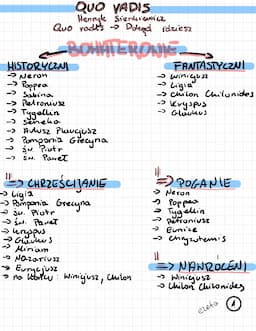 QUO VADIS
Henryk Sienkiewicz
Quo vadis → Dokąd idziesz
BOHATEROWIE
HISTORYCZNI
→ Neron
→ Poppea
→ Sabina
→ Petroniusz
→ Tygellin
→ Seneka
→ Aulusz Plaucjusz
→ Pomponia Grecyna
→ św. Piotr
→ św. Paweł
FANTASTYCZNI
→ Winicjusz
→ Ligia
→ Chilon Chilonides
→ Kryspus
→ Glaukus
II => CHRZEŚCIJANIE
→ Ligia
→ Pomponia Grecyna
→ św. Piotr
→ św. Paweł
→ Kryspus
→ Glaukus
→ Miriam
→ Nazariusz
→ Eurycjusz
→ na końcu: Winicjusz, Chilon
II => POGANIE
→ Neron
→ Poppea
→ Tygellin
→ Petroniusz
→ Eunice
→ Chryzotemis
II => NAWRÓCENI
→ Winicjusz
→ Chilon Chilonides
1